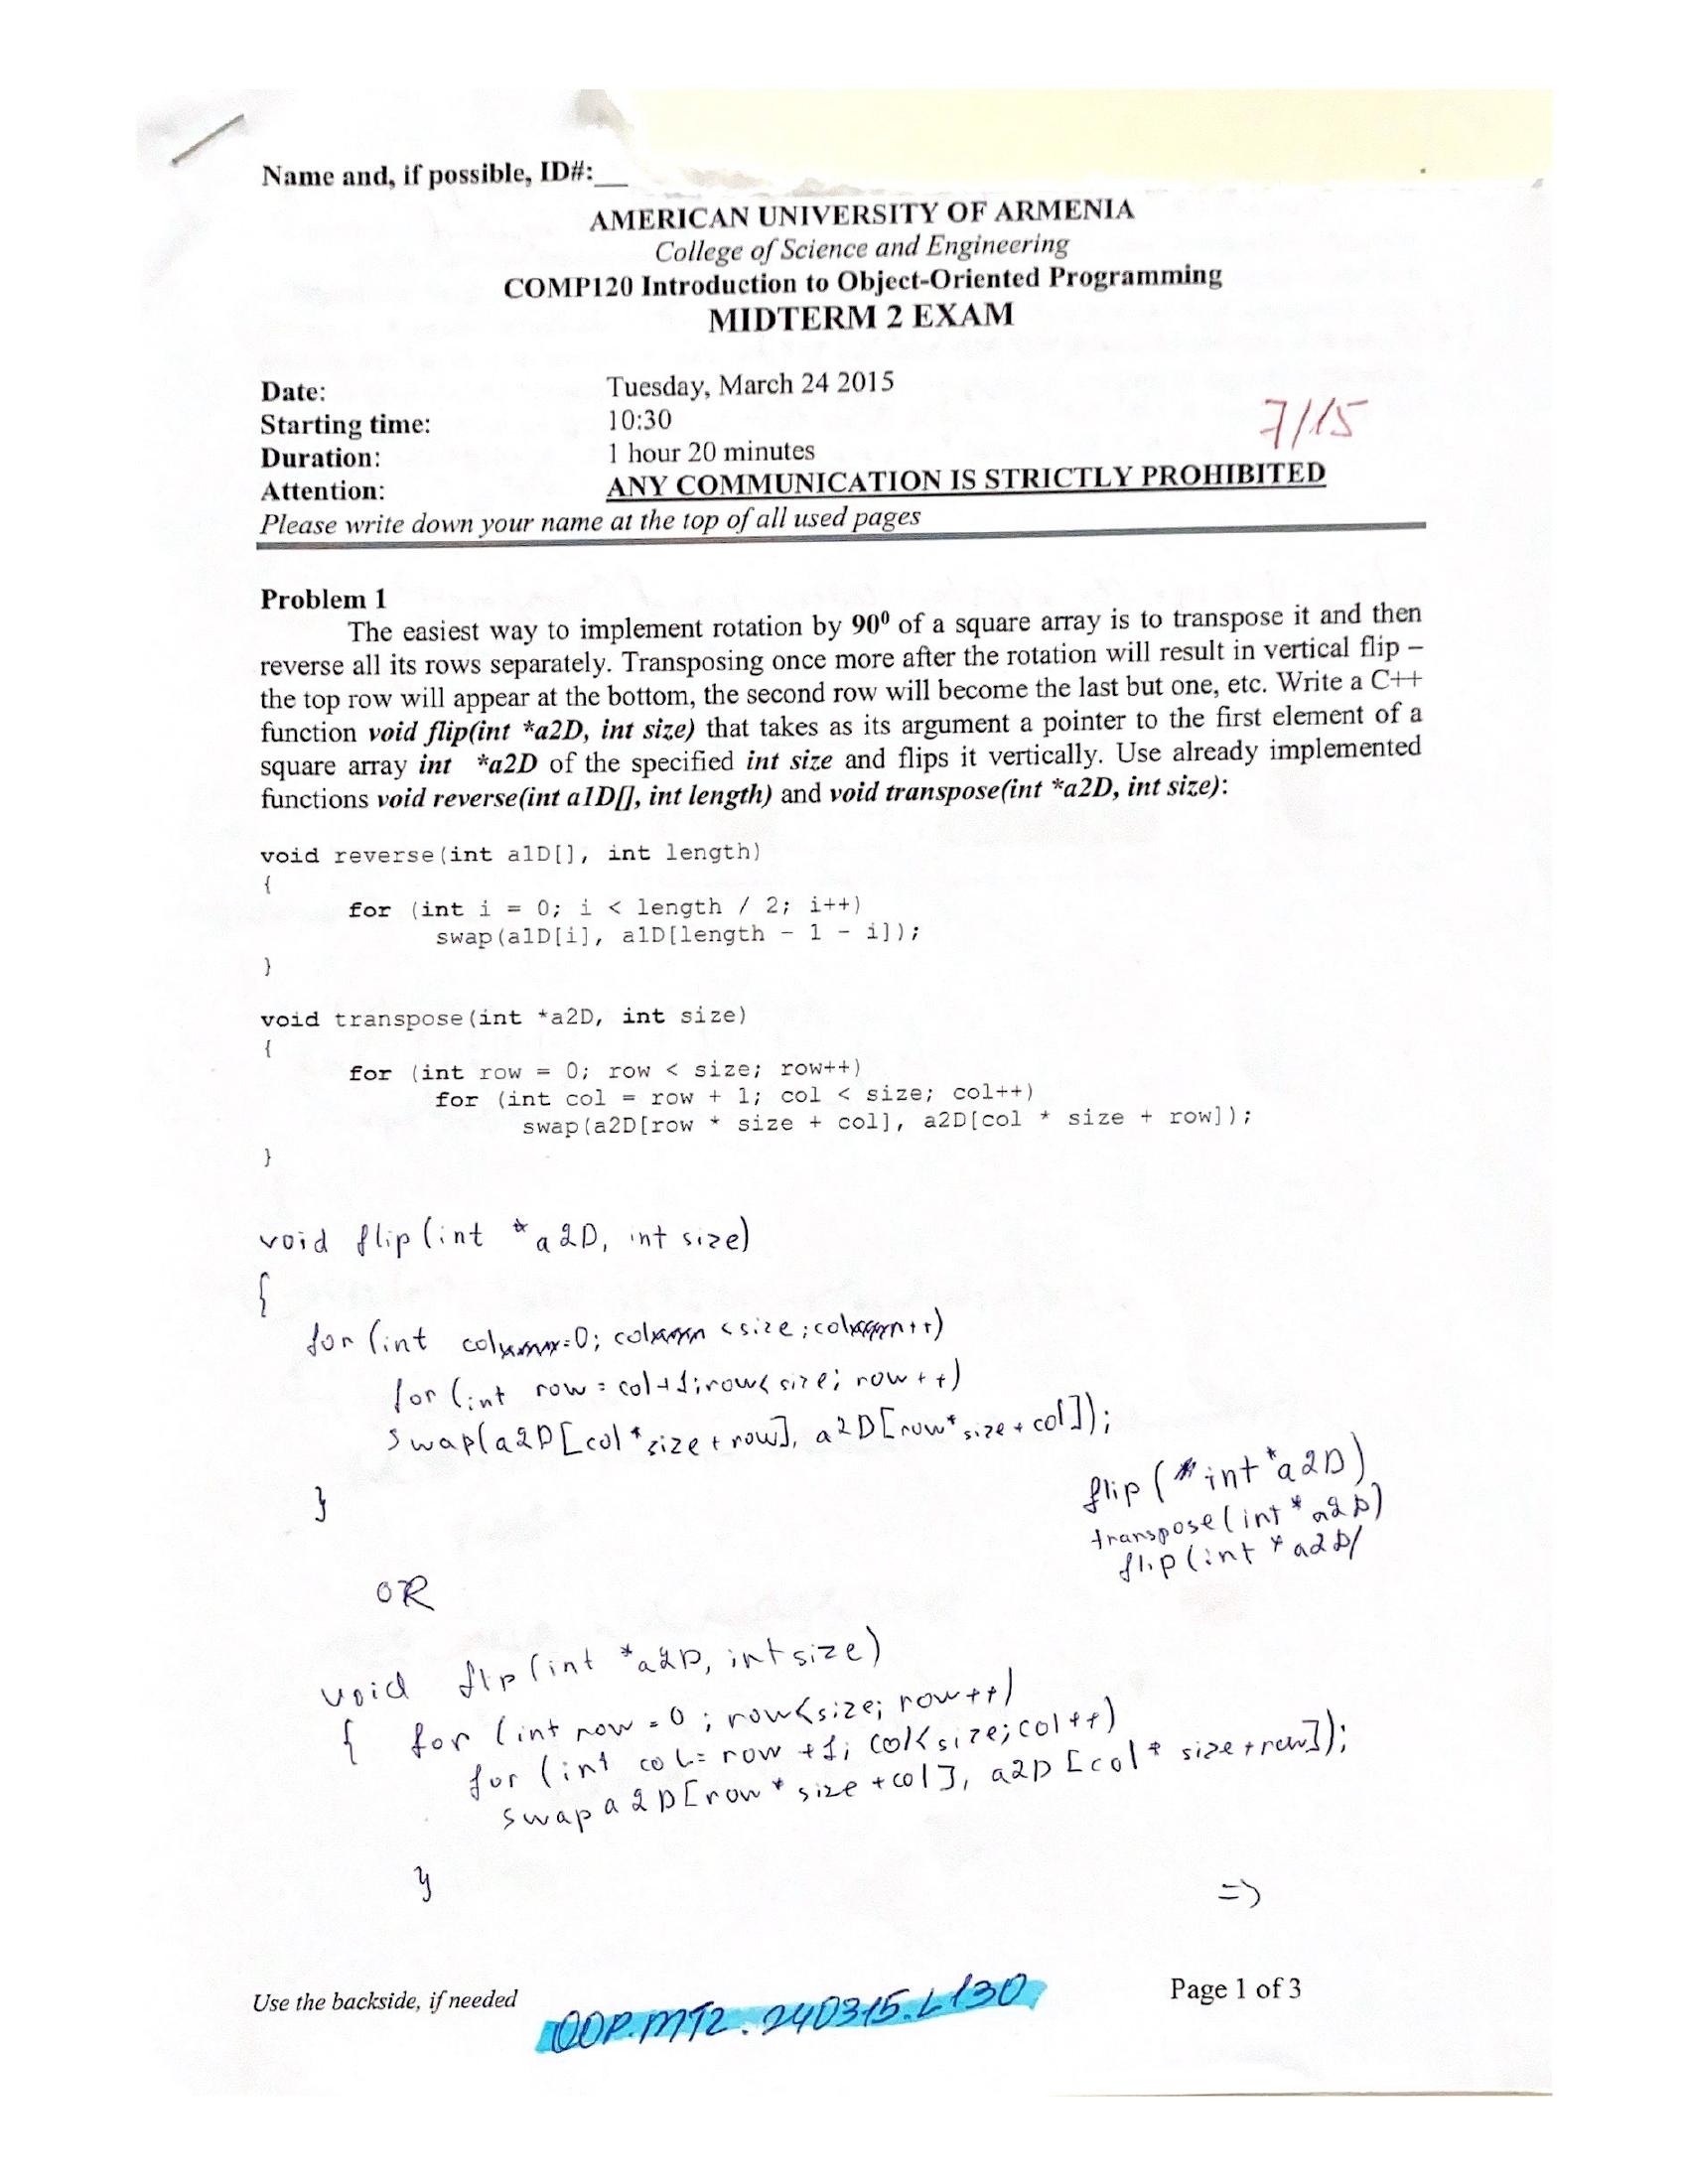 Name and, if possible, ID#:__
AMERICAN UNIVERSITY OF ARMENIA
College of Science and Engineering
COMP120 Introduction to Object-Oriented Programming
MIDTERM 2 EXAM
Date: Tuesday, March 24 2015
Starting time: 10:30
7/15
Duration: 1 hour 20 minutes
Attention: ANY COMMUNICATION IS STRICTLY PROHIBITED
Please write down your name at the top of all used pages
Problem 1
The easiest way to implement rotation by 90⁰ of a square array is to transpose it and then
reverse all its rows separately. Transposing once more after the rotation will result in vertical flip –
the top row will appear at the bottom, the second row will become the last but one, etc. Write a C++
function void flip(int *a2D, int size) that takes as its argument a pointer to the first element of a
square array int *a2D of the specified int size and flips it vertically. Use already implemented
functions void reverse(int a1D[], int length) and void transpose(int *a2D, int size):
void reverse(int a1D[], int length)
{
for (int i = 0; i < length / 2; i++)
swap(a1D[i], a1D[length - 1 - i]);
}
void transpose(int *a2D, int size)
{
for (int row = 0; row < size; row++)
for (int col = row + 1; col < size; col++)
swap(a2D[row * size + col], a2D[col * size + row]);
}
void flip(int *a2D, int size)
{
for (int col=0; col <size; col++)
for (int row = col+1; row< size; row++)
swap(a2D[col*size+row], a2D[row*size+col]);
}
flip (int *a2D)
transpose(int *a2D)
flip(int *a2D/
OR
void flip(int *a2D, int size)
{ for (int row = 0; row<size; row++)
for (int col= row +1; col<size; col++)
swap a2D[row * size +col], a2D[col * size+row]);
}
=>
Use the backside, if needed
OOP.MT2.240315.L130
Page 1 of 3